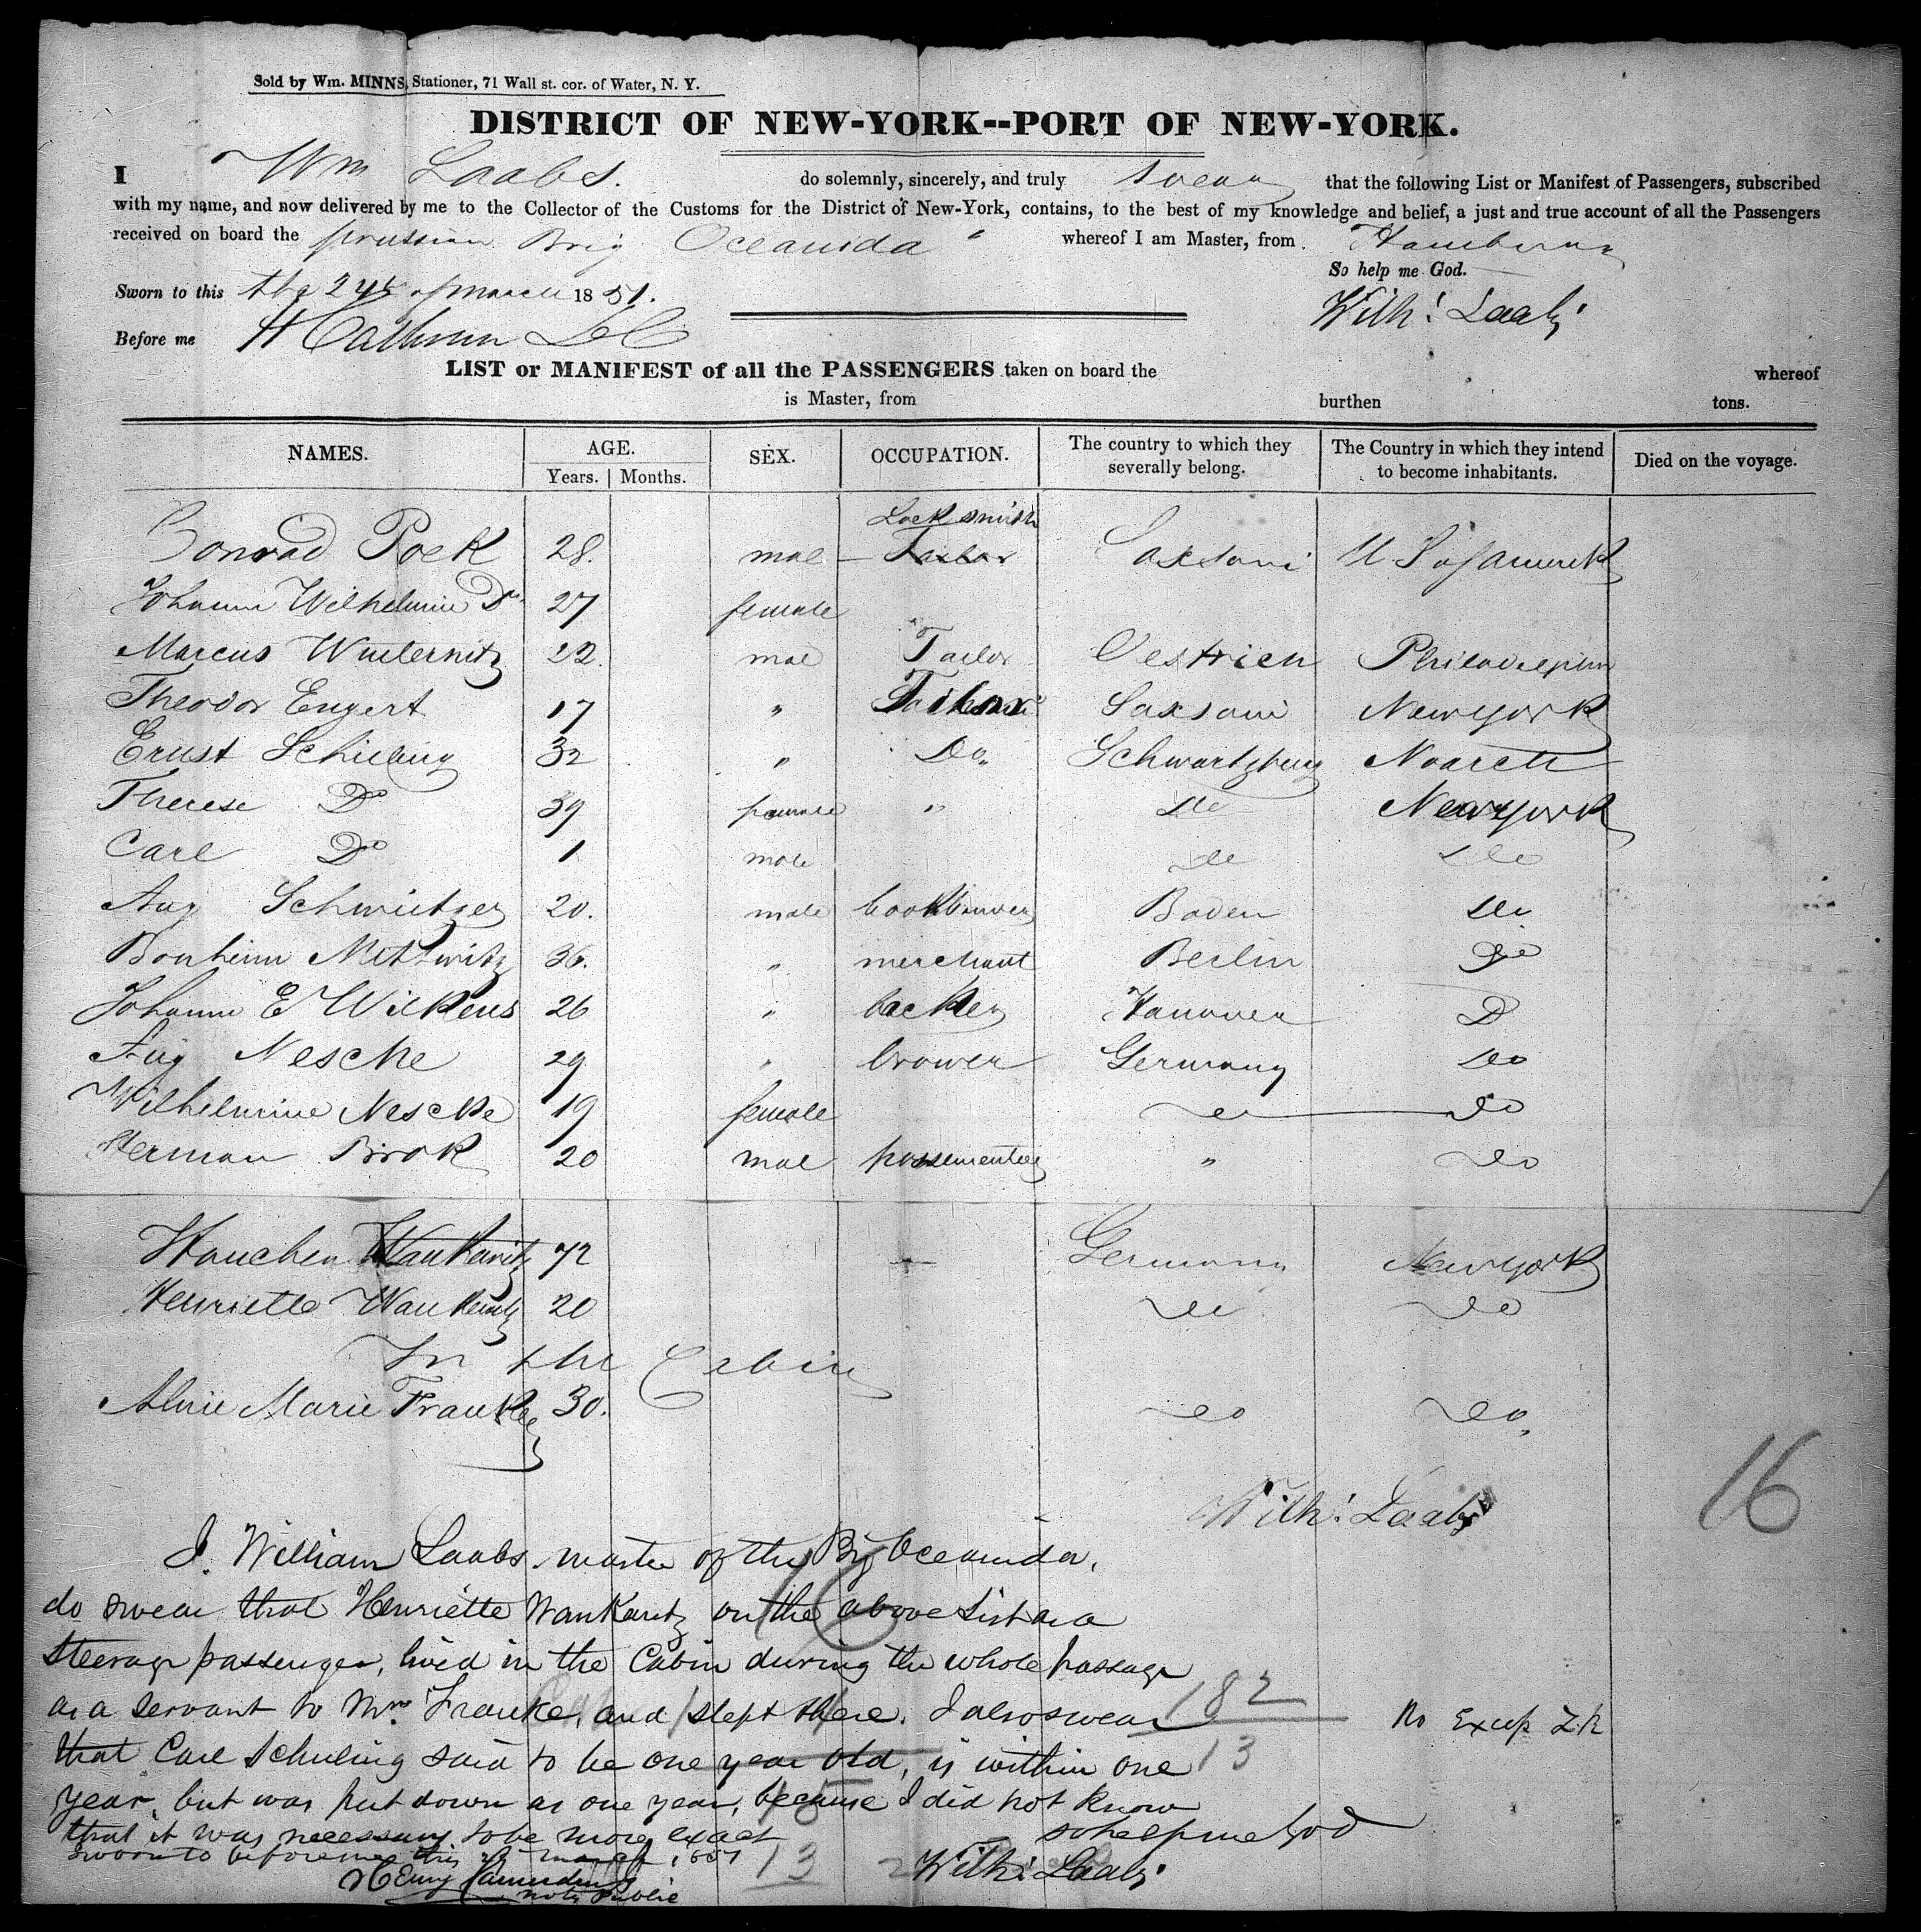 Sold by Wm. MINNS, Stationer, 71 Wall st. cor. of Water, N. Y.
DISTRICT OF NEW-YORK--PORT OF NEW-YORK.
I Wm Laabs. do solemnly, sincerely, and truly swear that the following List or Manifest of Passengers, subscribed
with my name, and now delivered by me to the Collector of the Customs for the District of New-York, contains, to the best of my knowledge and belief, a just and true account of all the Passengers
received on board the prussian Brig Oceanida whereof I am Master, from Hamburg
So help me God.
Sworn to this the 24th of March 1851.
Wilh: Laabs
Before me H Calhoun
LIST or MANIFEST of all the PASSENGERS taken on board the whereof
is Master, from burthen tons.
NAMES. AGE. Years. Months. SEX. OCCUPATION. The country to which they severally belong. The Country in which they intend to become inhabitants. Died on the voyage.
Locksmith
Conrad Pock 28. mal Tailor Saxsoni U S of Amerik
Johann Wilhelmine Do 27 female
Marcus Winternitz 22. mal Tailor Oestrich Philadelphia
Theodor Engert 17 " Saxsoni New york
Ernst Schieling 32 " Do Schwartzburg
Therese Do 39 female " do New york
Carl Do 1 male do do
Aug Schwietzer 20. male Baden do
36. " merchant Berlin Do
Johann E Wilkens 26 " backer Hanover D
Aug Nesche 29 " brower Germany do
Wilhelmine Nescke 19 female do do
Herman Brok 20 mal passementer " do
Hanchen Wankawitz 72 Germany New york
Henriette Wankawitz 20 do do
In the Cabin
Marie Franke 30. do do
16
Wilh: Laabs
I. William Laabs master of the Brig Oceanida,
do swear that Henriette Wankawitz on the above List as a
steerage passenger, lived in the Cabin during the whole passage
as a servant to Mrs Franke, and slept there. I also swear
182
No Excep
that Carl Schieling said to be one year old, is within one
13
year, but was put down as one year, because I did not know
that it was necessary to be more exact so help me God
sworn to before me this March 1851
13
Wilh: Laabs
Henry
Notary Public